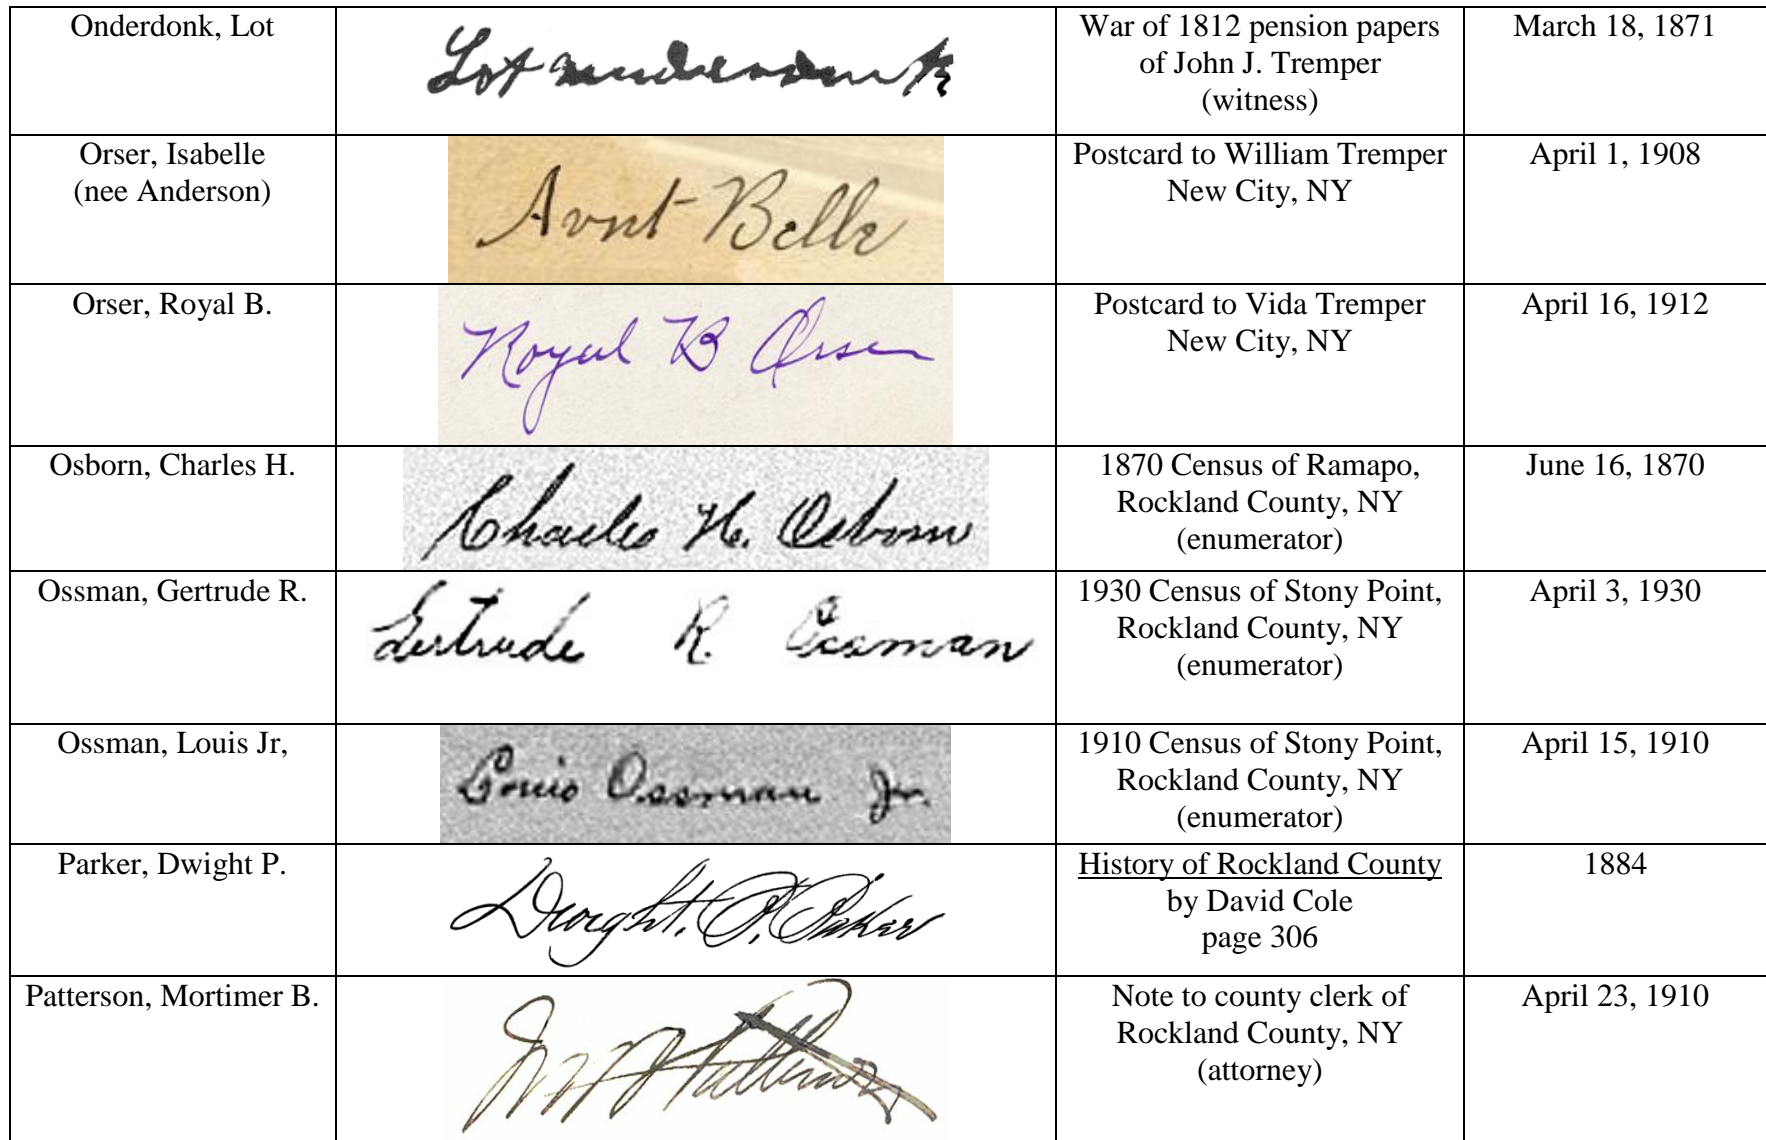 Onderdonk, Lot
Lot Onderdonk
War of 1812 pension papers
of John J. Tremper
(witness)
March 18, 1871
Orser, Isabelle
(nee Anderson)
Aunt Belle
Postcard to William Tremper
New City, NY
April 1, 1908
Orser, Royal B.
Royal B Orser
Postcard to Vida Tremper
New City, NY
April 16, 1912
Osborn, Charles H.
Charles H. Osborn
1870 Census of Ramapo,
Rockland County, NY
(enumerator)
June 16, 1870
Ossman, Gertrude R.
Gertrude R. Ossman
1930 Census of Stony Point,
Rockland County, NY
(enumerator)
April 3, 1930
Ossman, Louis Jr,
Louis Ossman Jr.
1910 Census of Stony Point,
Rockland County, NY
(enumerator)
April 15, 1910
Parker, Dwight P.
Dwight. P. Parker
History of Rockland County
by David Cole
page 306
1884
Patterson, Mortimer B.
M B Patterson
Note to county clerk of
Rockland County, NY
(attorney)
April 23, 1910